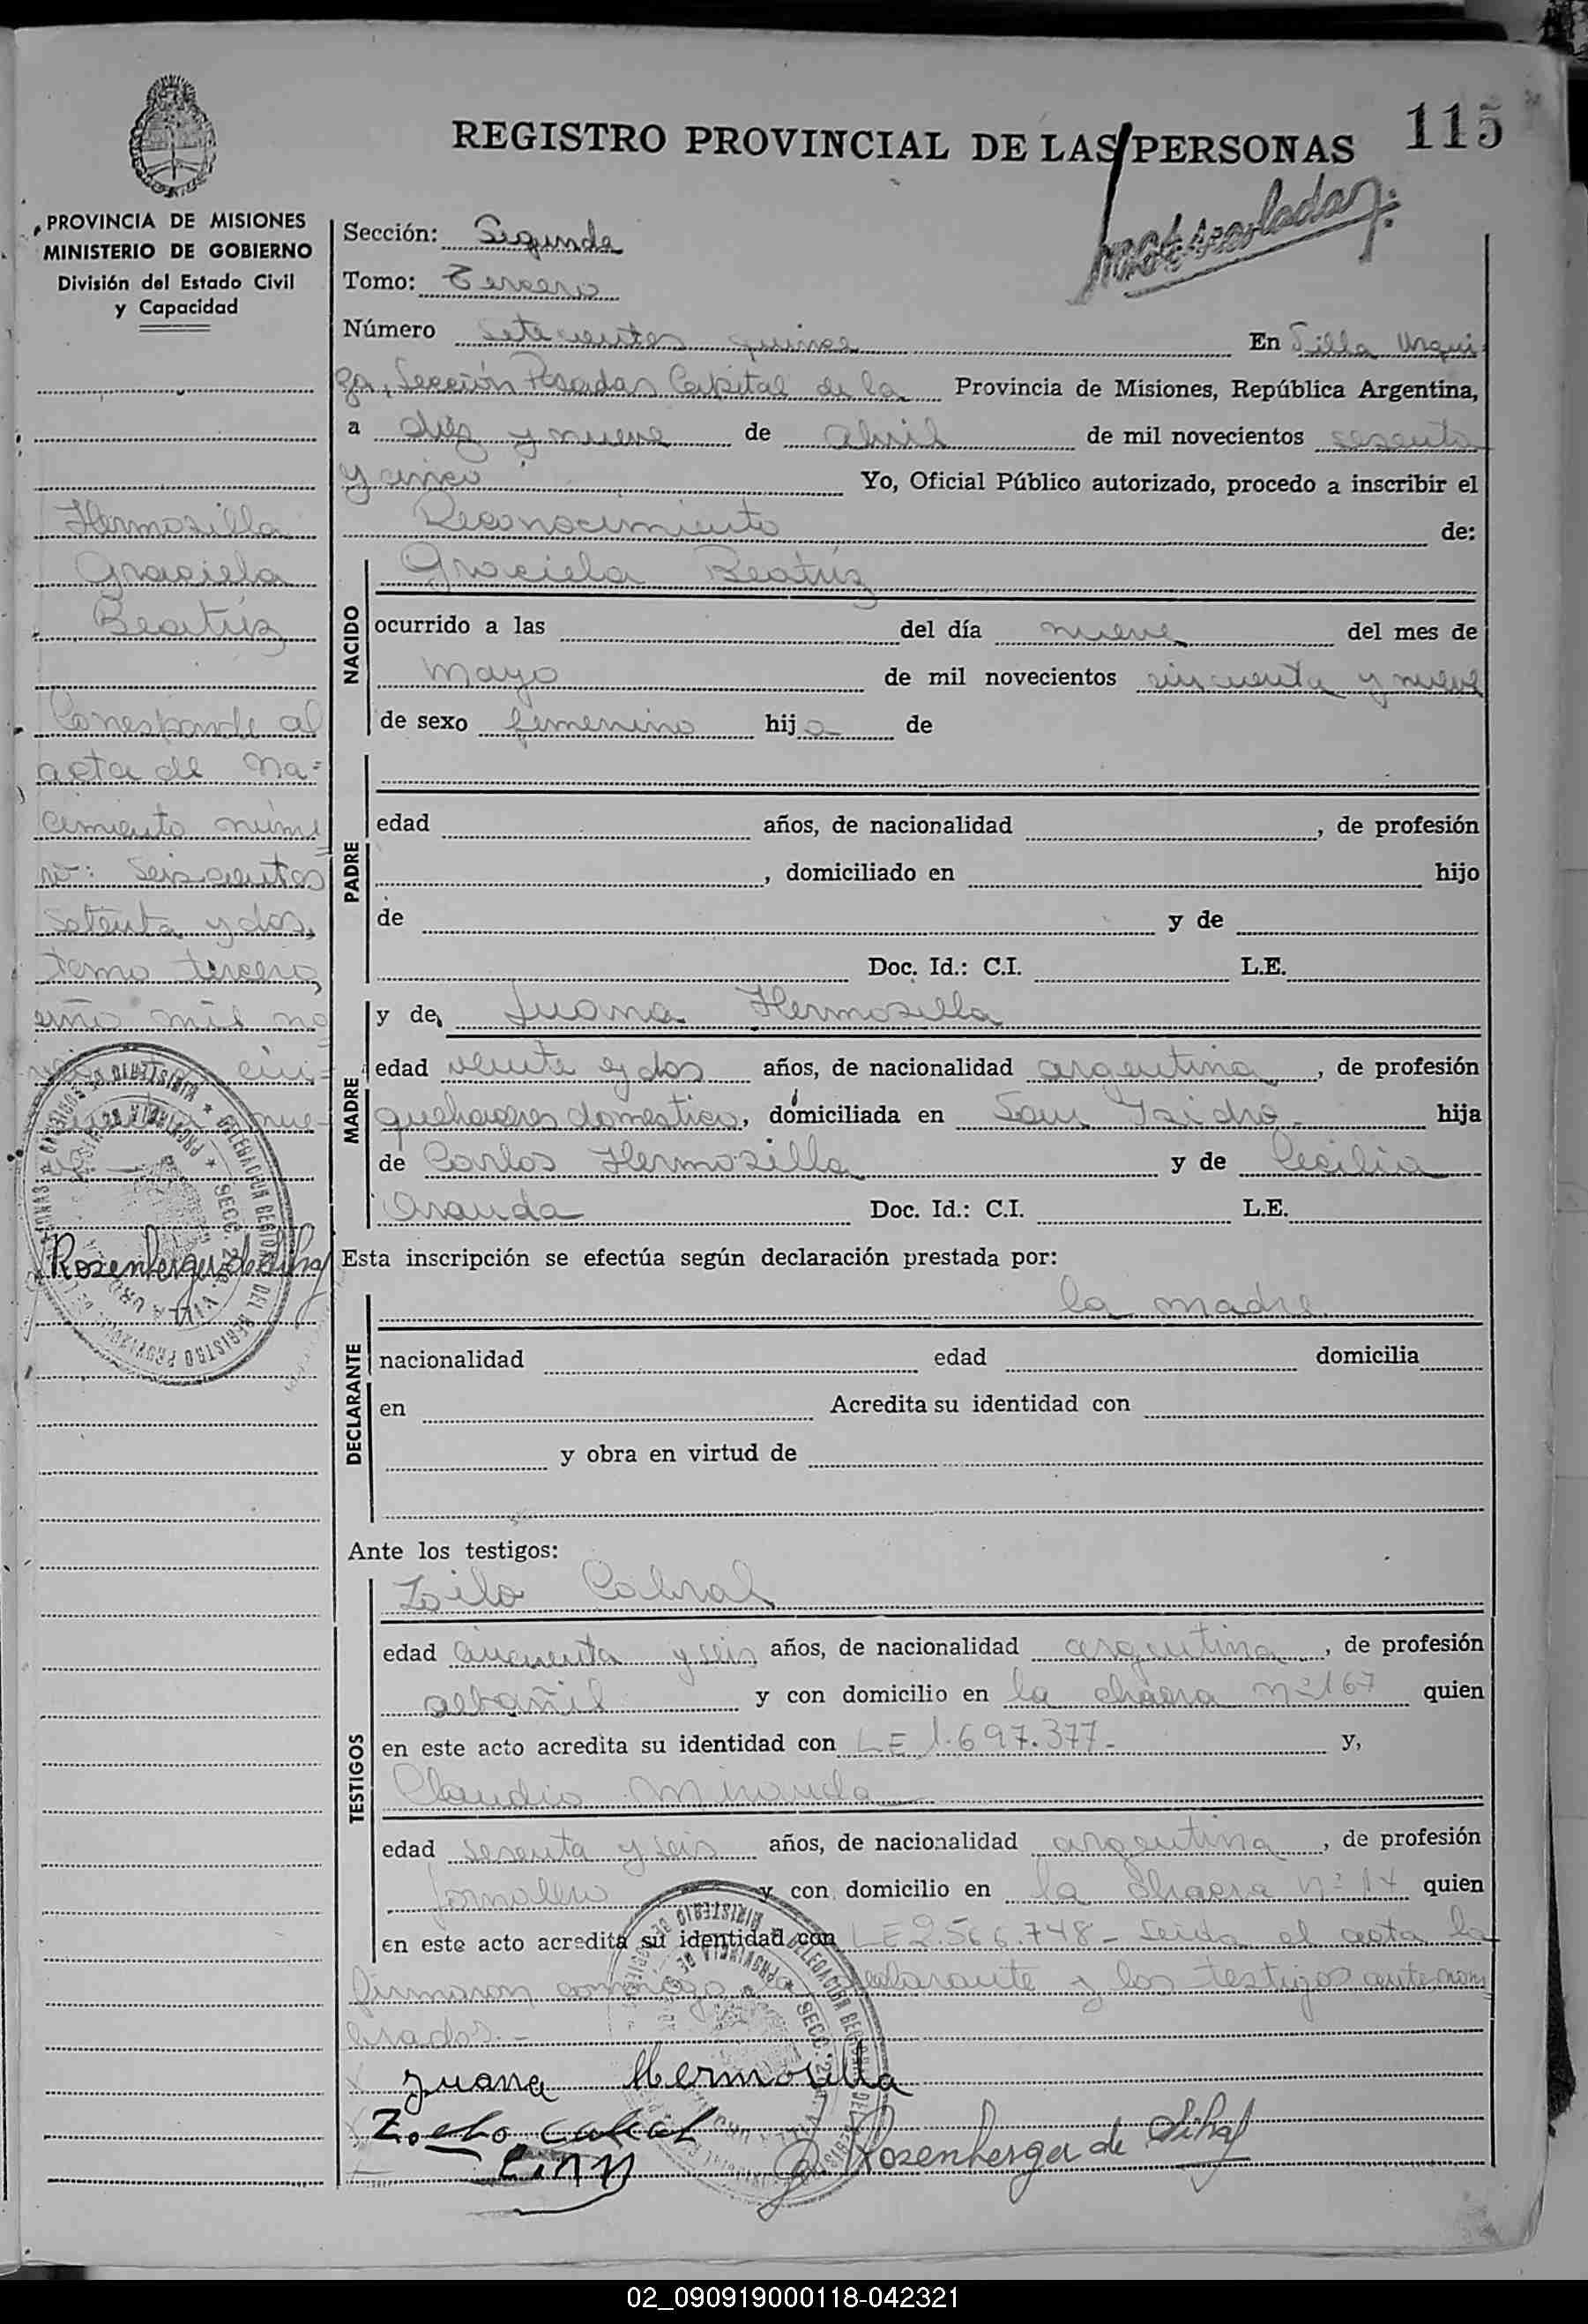 REGISTRO PROVINCIAL DE LAS PERSONAS 115
PROVINCIA DE MISIONES
MINISTERIO DE GOBIERNO
División del Estado Civil
y Capacidad
Hermosilla
Graciela
Beatríz
Corresponde al
acta de Na=
cimiento núme
ro: Seiscientos
setenta y dos,
tomo tercero,
año mil no
cin=
cuenta y nue=
Rosenberger de Sihaf
Sección: Segunda
Tomo: Tercero
Número setecientos quince En Villa Urqui
za, Sección Posadas Capital de la Provincia de Misiones, República Argentina,
a diez y nueve de Abril de mil novecientos sesenta
y cinco Yo, Oficial Público autorizado, procedo a inscribir el
Reconocimiento de:
NACIDO
Graciela Beatríz
ocurrido a las del día nueve del mes de
mayo de mil novecientos cincuenta y nueve
de sexo femenino hija de
PADRE
edad años, de nacionalidad , de profesión
, domiciliado en hijo
de y de
Doc. Id.: C.I. L.E.
MADRE
y de Juana Hermosilla
edad veinte y dos años, de nacionalidad argentina, de profesión
quehaceres domestico, domiciliada en San Isidro hija
de Carlos Hermosilla y de Cecilia
Aranda Doc. Id.: C.I. L.E.
Esta inscripción se efectúa según declaración prestada por:
DECLARANTE
la madre
nacionalidad edad domicilia
en Acredita su identidad con
y obra en virtud de
Ante los testigos:
TESTIGOS
Zoilo Cabral
edad cincuenta y seis años, de nacionalidad argentina, de profesión
albañil y con domicilio en la chacra nº 167 quien
en este acto acredita su identidad con LE 1.697.377- y,
Claudio Miranda
edad sesenta y seis años, de nacionalidad argentina, de profesión
jornalero y con domicilio en la chacra nº 14 quien
en este acto acredita su identidad con LE 2.566.748- Leida el acta la
firmaron conmigo la declarante y los testigos antenom
brados.-
Juana Hermosilla
Zoilo Cabral
Rosenberger de Sihaf
02_090919000118-042321